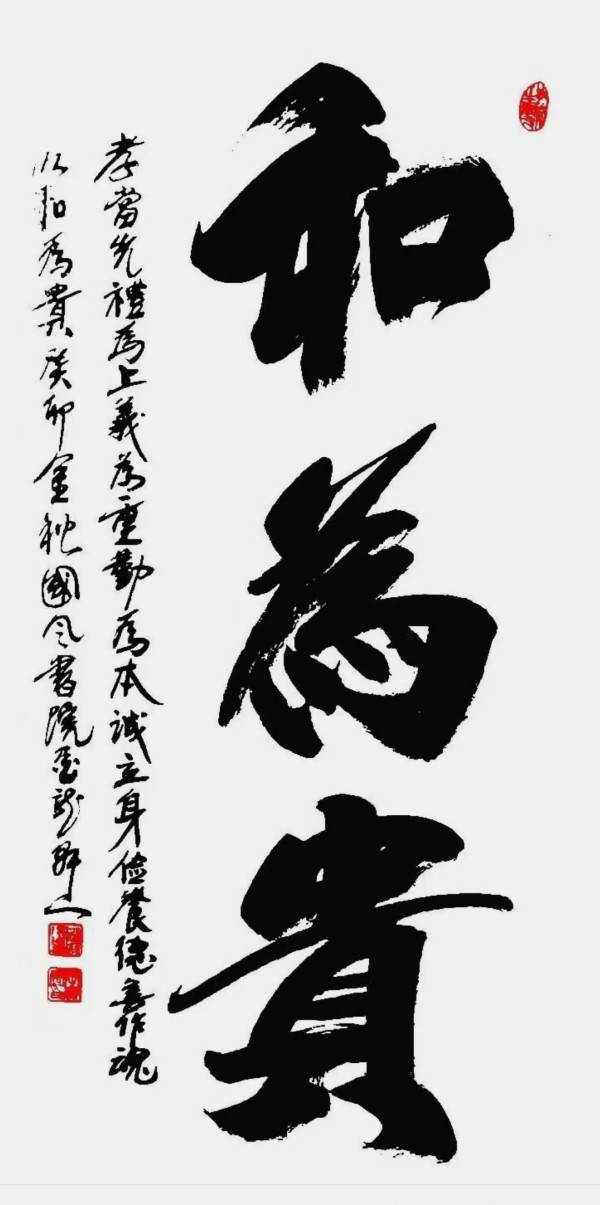 和為貴
孝當先禮為上義為重勤為本誠立身儉養德善作魂
以和為貴癸卯金秋國令書院